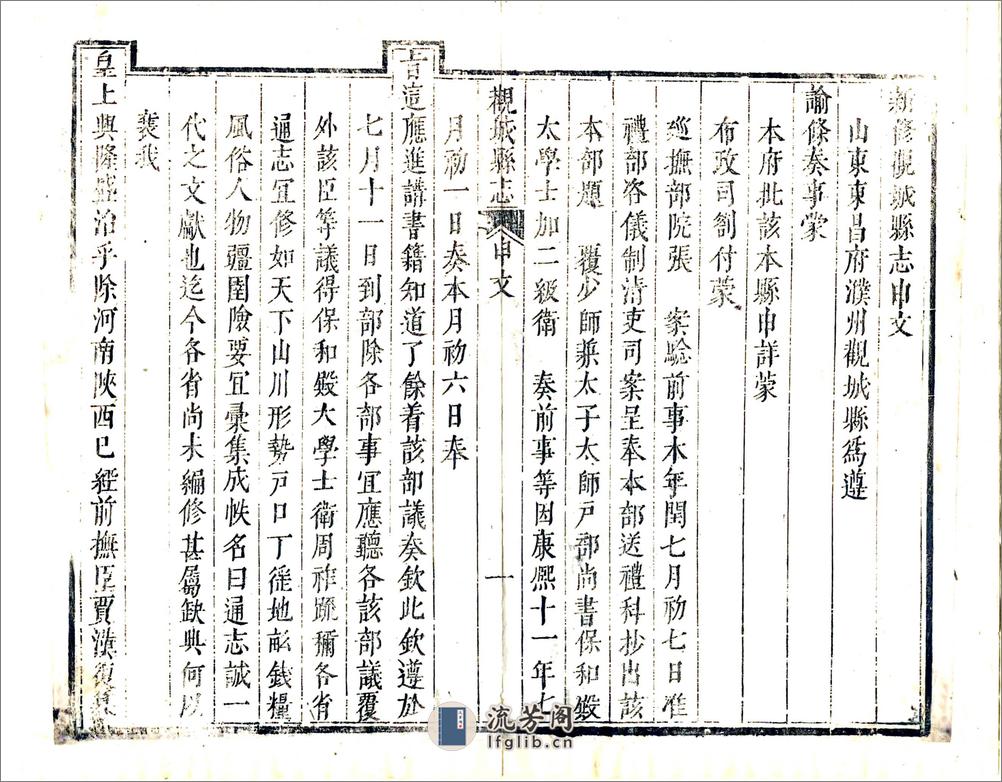 新修觀城縣志申文
山東東昌府濮州觀城縣爲遵
諭條奏事蒙
本府批該本縣申詳蒙
布政司劄付蒙
巡撫部院張　案驗前事本年閏七月初七日准
禮部咨儀制清吏司案呈奉本部送禮科抄出該
本部題　覆少師兼太子太師戶部尚書保和殿
大學士加二級衛　奏前事等因康熙十一年七
觀城縣志　申文　一
月初一日奏本月初六日奉
旨這應進講書籍知道了餘着該部議奏欽此欽遵於
七月十一日到部除各部事宜應聽各該部議覆
外該臣等議得保和殿大學士衛周祚疏稱各省
通志宜修如天下山川形勢戶口丁徭地畝錢糧
風俗人物疆圉險要宜彙集成帙名曰通志誠一
代之文獻也迄今各省尚未編修甚屬缺典何以
襄我
皇上興隆盛治乎除河南陝西已經前撫臣賈漢復
流芳閣
lfglib.cn